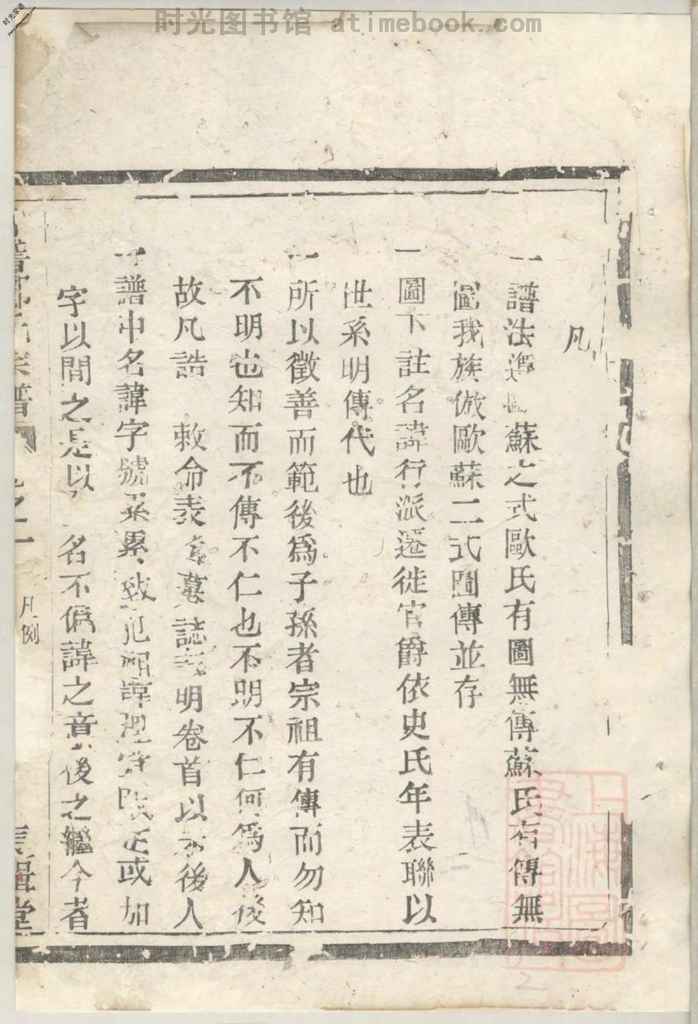 时光图书馆 atimebook.com
凡
一譜法遵歐蘇之式歐氏有圖無傳蘇氏有傳無
圖我族倣歐蘇二式圖傳並存
一圖下註名諱行派遷徙官爵依史氏年表聯以
世系明傳代也
一所以徵善而範後為子孫者宗祖有傳而勿知
不明也知而不傳不仁也不明不仁何為人後
故凡誥 敕命表 墓誌 明卷首以示後人
一譜中名諱字號累累致犯 諱 或如
字以間之是以 名不偏諱之意後之繼今者
宗譜
凡例
堂